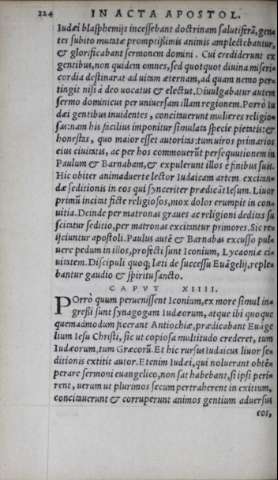 224 IN ACTA APOSTOL.
Iudæi blasphemijs incessebant doctrinam salutiferā, gen-
tes subito mutatæ promptissimis animis amplectebantur,
& glorificabant sermonem domini. Cui crediderunt ex
gentibus, non quidem omnes, sed quotquot diuina miseri-
cordia destinarat ad uitam æternam, ad quam nemo per-
tingit nisi à deo uocatus & electus. Diuulgabatur autem
sermo dominicus per uniuersam illam regionem. Porrò Iu
dæi gentibus inuidentes, concitauerunt mulieres religio-
sas: nam his facilius imponitur simulata specie pietatis: &
honestas, quo maior esset autoritas: tum uiros primarios
eius ciuitatis, ac per hos commouerūt persequutionem in
Paulum & Barnaban, & expulerunt illos è finibus suis.
Hic obiter animaduerte lector Iudaicam artem. excitan-
dæ seditionis in eos qui synceriter prædicāt Iesum. Liuor
primū incitat ficte religiosos, mox dolor erumpit in con-
uitia. Deinde per matronas graues ac religioni deditas su
scitatur seditio, per matronas excitantur primores. Sic re-
ijciuntur apostoli. Paulus autē & Barnabas excusso pul-
uere pedum in illos, profecti sunt Iconium, Lycaoniæ ci-
uitatem. Discipuli quoq; læti de successu Euāgelij, reple-
bantur gaudio & spiritu sancto.
CAPVT XIIII.
POrrò quum peruenissent Iconium, ex more simul in-
gressi sunt synagogam Iudæorum, atque ibi quoque
quemadmodum fecerant Antiochiæ, prædicabant Euāge
lium Iesu Christi, sic ut copiosa multitudo crederet, tum
Iudæorum, tum Græcorū. Et hic rursus Iudaicus liuor se-
ditionis extitit autor. Etenim Iudæi, qui noluerant obtē-
perare sermoni euangelico, non sat habebant, si ipsi peri-
rent, uerum ut plurimos secum pertraherent in exitium,
concitauerunt & corruperunt animos gentium aduersus
eos,